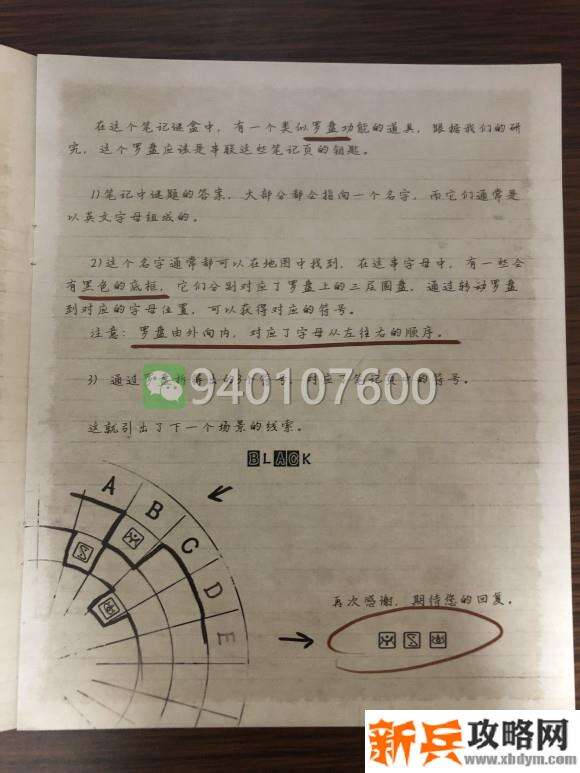 在这个笔记谜盒中，有一个类似罗盘功能的道具，跟据我们的研
究，这个罗盘应该是串联这些笔记页的钥匙。
1)笔记中谜题的答案，大部分都会指向一个名字，而它们通常是
以英文字母组成的。
2)这个名字通常都可以在地图中找到，在这串字母中，有一些会
有黑色的底框，它们分别对应了罗盘上的三层圆盘，通过转动罗盘
到对应的字母位置，可以获得对应的符号。
注意：罗盘由外向内，对应了字母从左往右的顺序。
3) 通过罗盘 3个符号，对应了笔记页中的符号。
940107600
这就引出了下一个场景的线索。
BLACK
A B C D E
再次感谢，期待您的回复。
新兵攻略网
www.xbdym.com